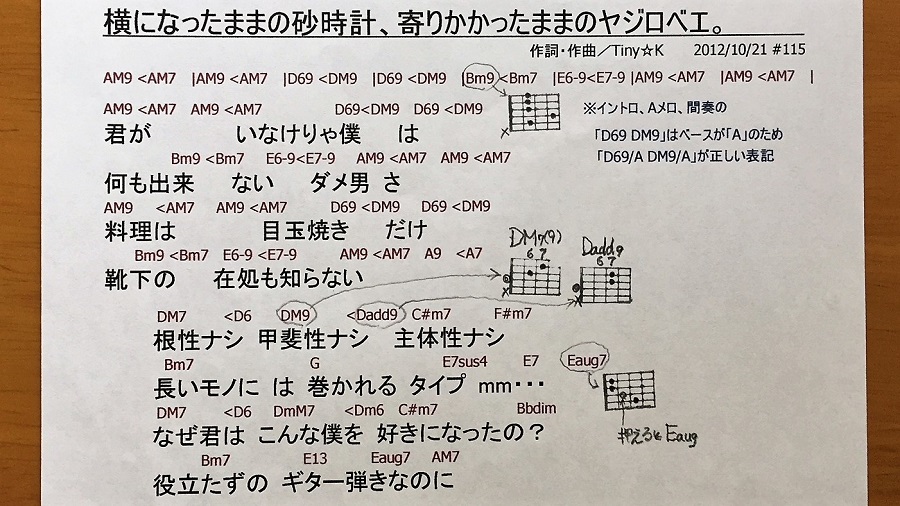 横になったままの砂時計、寄りかかったままのヤジロベエ。
作詞・作曲／Tiny☆K 2012/10/21 #115
AM9 <AM7 |AM9 <AM7 |D69 <DM9 |D69 <DM9 |Bm9 <Bm7 |E6-9<E7-9 |AM9 <AM7 |AM9 <AM7 |
AM9 <AM7 AM9 <AM7 D69<DM9 D69 <DM9
君が いなけりゃ僕 は
※イントロ、Aメロ、間奏の
「D69 DM9」はベースが「A」のため
「D69/A DM9/A」が正しい表記
×
Bm9 <Bm7 E6-9<E7-9 AM9 <AM7 AM9 <AM7
何も出来 ない ダメ男 さ
AM9 <AM7 AM9 <AM7 D69 <DM9 D69 <DM9
料理は 目玉焼き だけ
Bm9 <Bm7 E6-9 <E7-9 AM9 <AM7 A9 <A7
靴下の 在処も知らない
DM7(9)
6 7
×
Dadd9
6 7
×
DM7 <D6 DM9 <Dadd9 C#m7 F#m7
根性ナシ 甲斐性ナシ 主体性ナシ
Bm7 G E7sus4 E7 Eaug7
長いモノに は 巻かれる タイプ mm･･･
DM7 <D6 DmM7 <Dm6 C#m7 Bbdim
なぜ君は こんな僕を 好きになったの？
押えるとEaug
Bm7 E13 Eaug7 AM7
役立たずの ギター弾きなのに